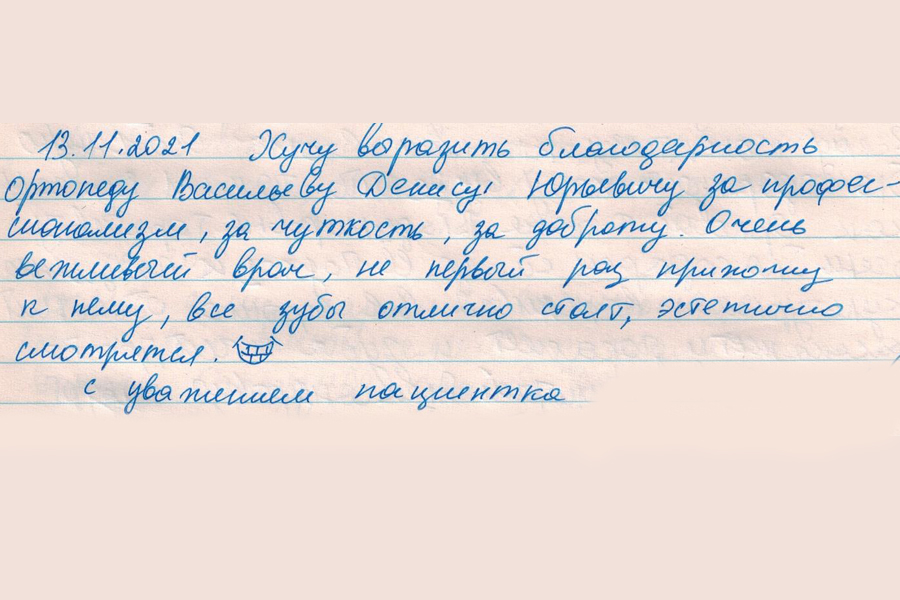 13.11.2021 Хучу воразить благодарность
Ортопеду Васильеву Денису Юрьевичу за профес-
сионализм, за чуткость, за доброту. Очень
вежливый врач, не первый раз прихожу
к нему, все зубы отлично стоят, эстетично
смотрятся.
с уважением пациентка